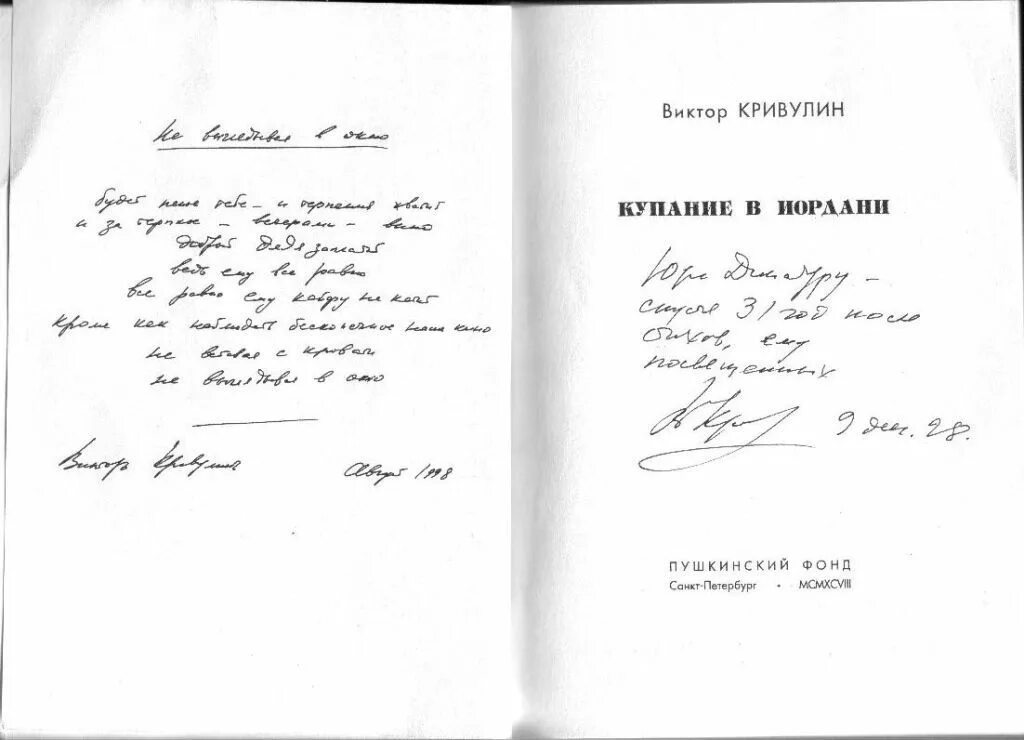 Не выглядывая в окно
будет пение тебе – и терпения хватит
и за терпкое – вечерами – вино
добрый дядя заплатит
ведь ему все равно
все равно ему кайфу не катит
кроме как наблюдать бесконечное наше кино
не вставая с кровати
не выглядывая в окно
Виктор Кривулин
Август 1998
Виктор КРИВУЛИН
КУПАНИЕ В ИОРДАНИ
Юре –
спустя 31 год после
стихов, ему
посвященных
9 дек. 98.
ПУШКИНСКИЙ ФОНД
Санкт-Петербург • MCMXCVIII